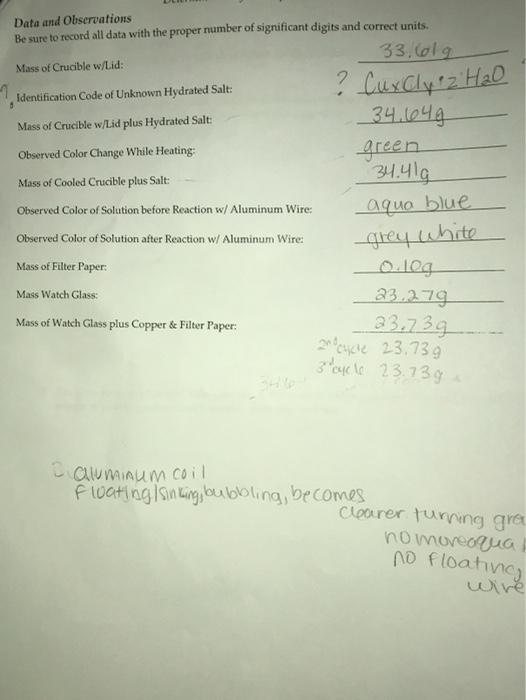 Data and Observations
Be sure to record all data with the proper number of significant digits and correct units.
Mass of Crucible w/Lid: 33.61g
Identification Code of Unknown Hydrated Salt: ? CuxCly·zH2O
Mass of Crucible w/Lid plus Hydrated Salt: 34.64g
Observed Color Change While Heating: green
Mass of Cooled Crucible plus Salt: 34.41g
Observed Color of Solution before Reaction w/ Aluminum Wire: aqua blue
Observed Color of Solution after Reaction w/ Aluminum Wire: grey white
Mass of Filter Paper: 0.10g
Mass Watch Glass: 23.27g
Mass of Watch Glass plus Copper & Filter Paper: 23.73g
2nd cycle 23.73g
3rd cycle 23.73g
aluminum coil
floating/sinking, bubbling, becomes
clearer turning gra
no more aqua
no floating
wire